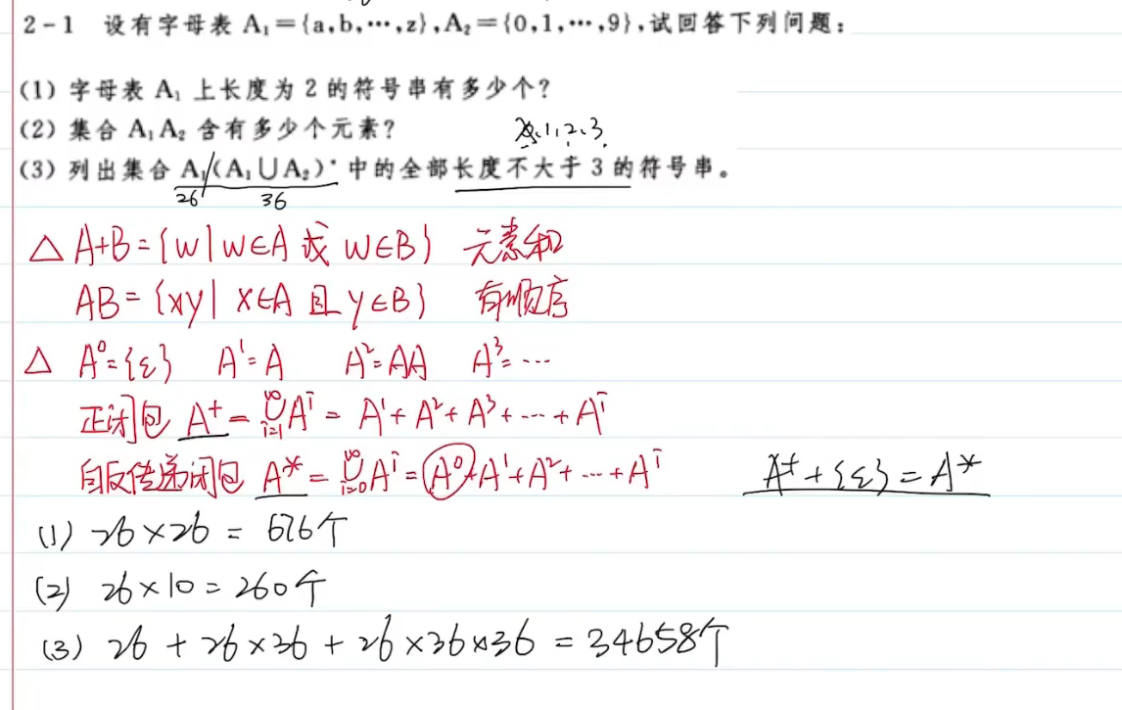 2-1 设有字母表 A₁={a,b,…,z},A₂={0,1,…,9},试回答下列问题:
(1) 字母表 A₁ 上长度为 2 的符号串有多少个?
(2) 集合 A₁A₂ 含有多少个元素?
1、2、3
(3) 列出集合 A₁(A₁∪A₂)* 中的全部长度不大于 3 的符号串。
26 36
△ A+B={w|w∈A 或 w∈B} 元素和
AB={xy| x∈A 且 y∈B} 有顺序
△ A⁰={ε} A¹=A A²=AA A³=…
正闭包 A⁺=∪_{i=1}^{∞}Aⁱ = A¹+A²+A³+…+Aⁱ
自反传递闭包 A*=∪_{i=0}^{∞}Aⁱ=A⁰+A¹+A²+…+Aⁱ A⁺+{ε}=A*
(1) 26×26 = 676个
(2) 26×10=260个
(3) 26+26×36+26×36×36=34658个